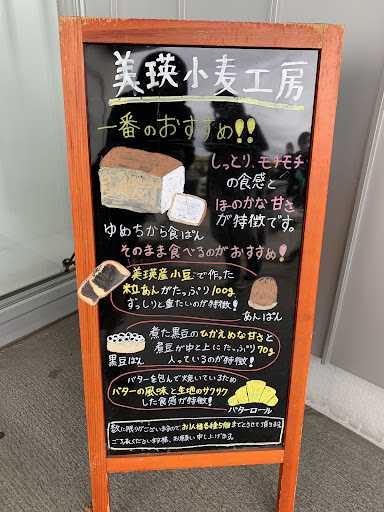 美瑛小麦工房
一番のおすすめ!!
しっとり、モチモチ
の食感と
ほのかな甘さ
が特徴です。
ゆめちから食ぱん
そのまま食べるのがおすすめ!
美瑛産小豆で作った
粒あんがたっぷり100g
ずっしりと重たいのが特徴!
あんぱん
煮た黒豆のひかえめな甘さと
黒豆が中と上にたっぷり70g
入っているのが特徴!
黒豆ぱん
バターを包んで焼いているため
バターの風味と生地のサクサク
した食感が特徴!
バターロール
数に限りがございますので、お1人様各種5個までとさせて頂きます
ご了承くださいます様、お願い申し上げます。